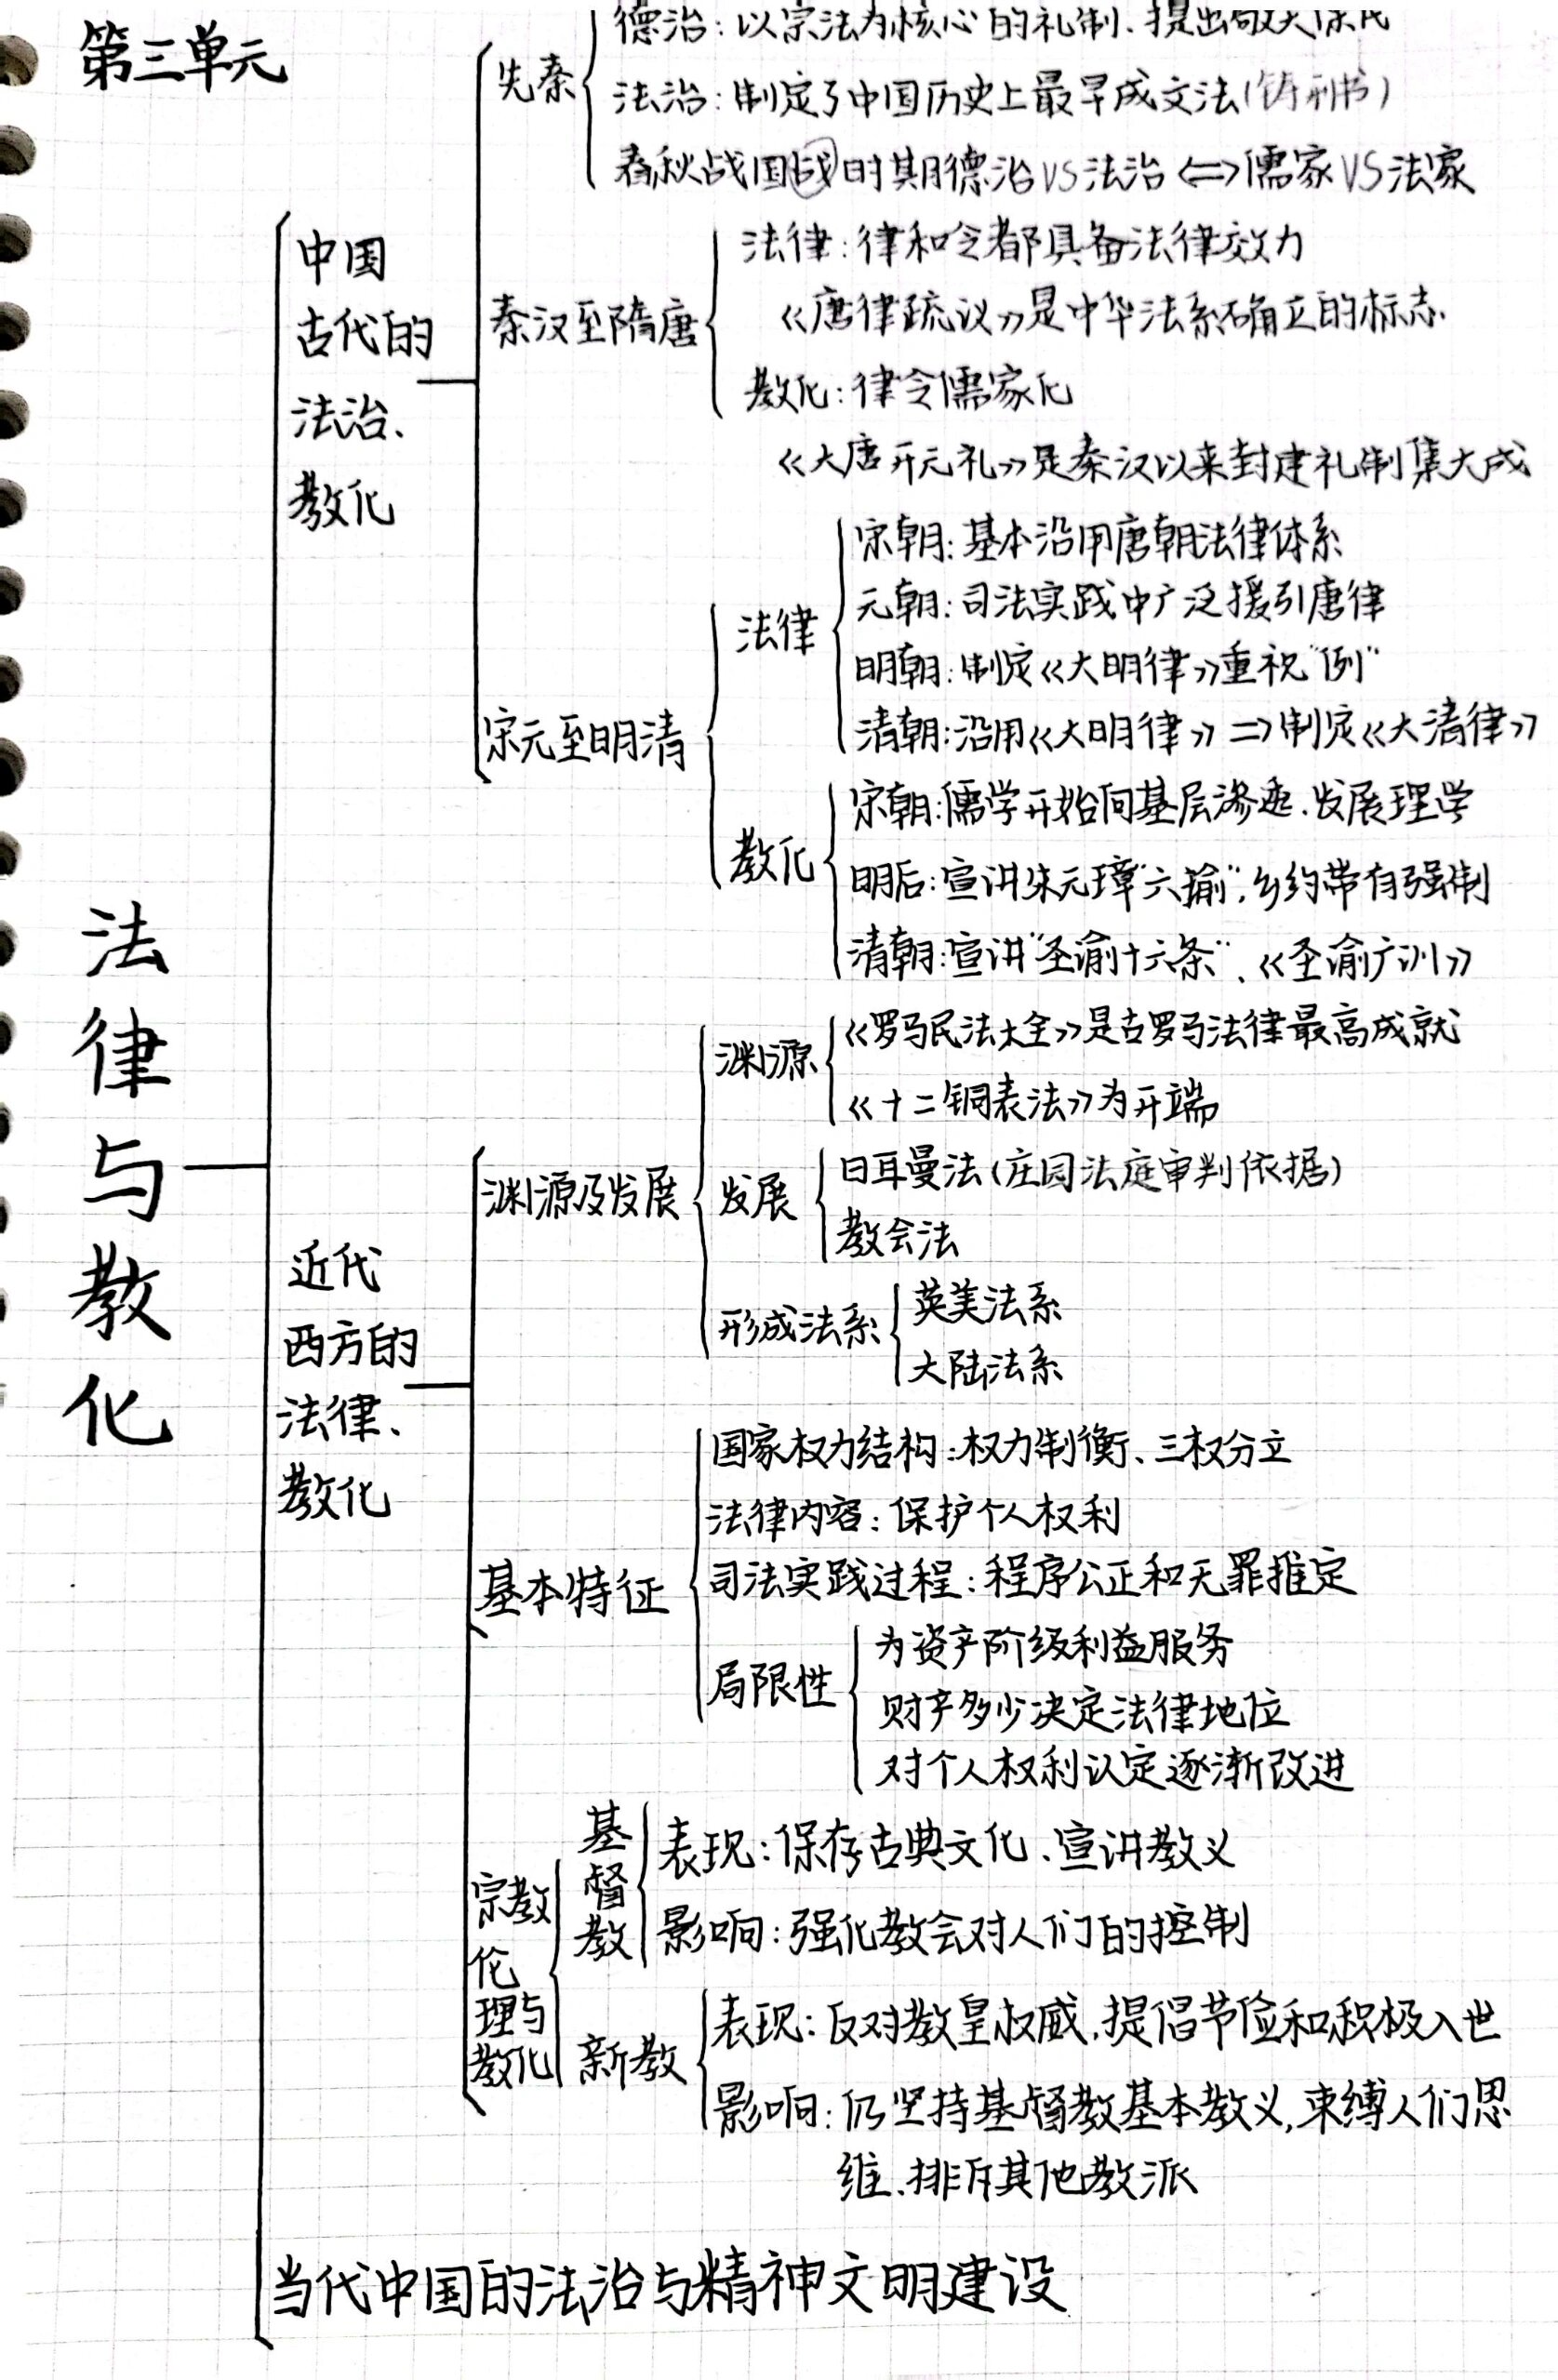 第三单元
法律与教化
中国
古代的
法治、
教化
先秦
德治：以宗法为核心的礼制、提出敬天保民
法治：制定了中国历史上最早成文法(铸刑书)
春秋战国战时期德治VS法治⇔儒家VS法家
秦汉至隋唐
法律：律和令都具备法律效力
《唐律疏议》是中华法系确立的标志.
教化：律令儒家化
《大唐开元礼》是秦汉以来封建礼制集大成
宋元至明清
法律
宋朝：基本沿用唐朝法律体系
元朝：司法实践中广泛援引唐律
明朝：制定《大明律》重视“例”
清朝：沿用《大明律》⇒制定《大清律》
教化
宋朝：儒学开始向基层渗透.发展理学
明后：宣讲朱元璋“六揄”,乡约带有强制
清朝：宣讲“圣谕十六条”、《圣谕广训》
近代
西方的
法律、
教化
渊源及发展
渊源
《罗马民法大全》是古罗马法律最高成就
《十二铜表法》为开端
发展
日耳曼法(庄园法庭审判依据)
教会法
形成法系
英美法系
大陆法系
基本特征
国家权力结构：权力制衡、三权分立
法律内容：保护个人权利
司法实践过程：程序公正和无罪推定
局限性
为资产阶级利益服务
财产多少决定法律地位
对个人权利认定逐渐改进
宗教
伦
理与
教化
基督教
表现：保存古典文化、宣讲教义
影响：强化教会对人们的控制
新教
表现：反对教皇权威,提倡节俭和积极入世
影响：仍坚持基督教基本教义,束缚人们思
维.排斥其他教派
当代中国的法治与精神文明建设